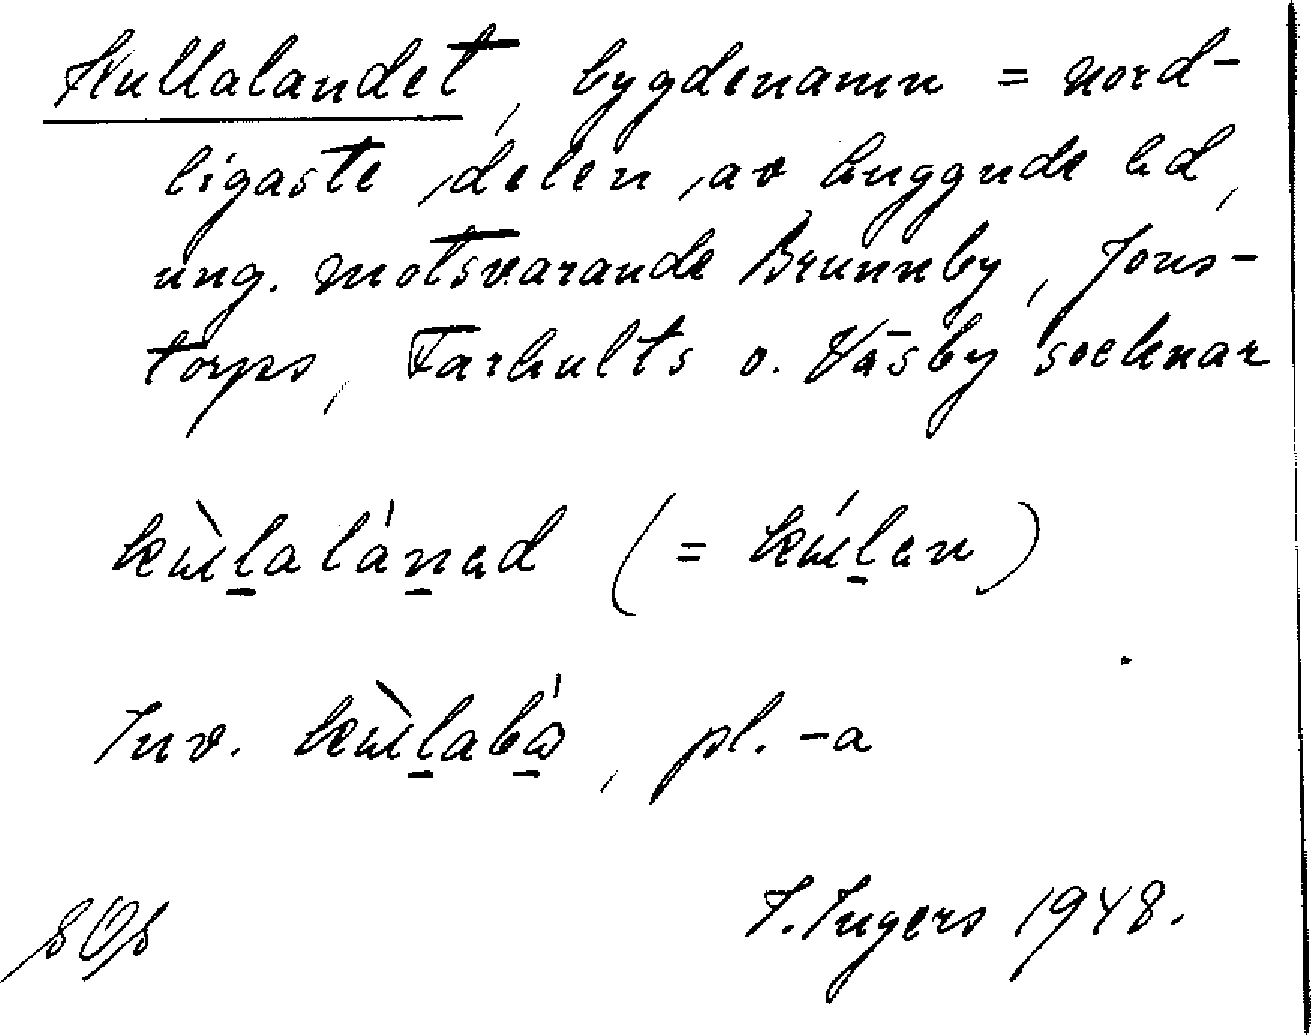 Kullalandet, bygdenamn = nord-
ligaste delen av Luggude hd,
ung. motsvarande Brunnby, Jons-
torps, Farhults o. Väsby socknar
kùlalánəd (= kúlən)
Inv. kùlabo, pl. -a
I. Ingers 1948.